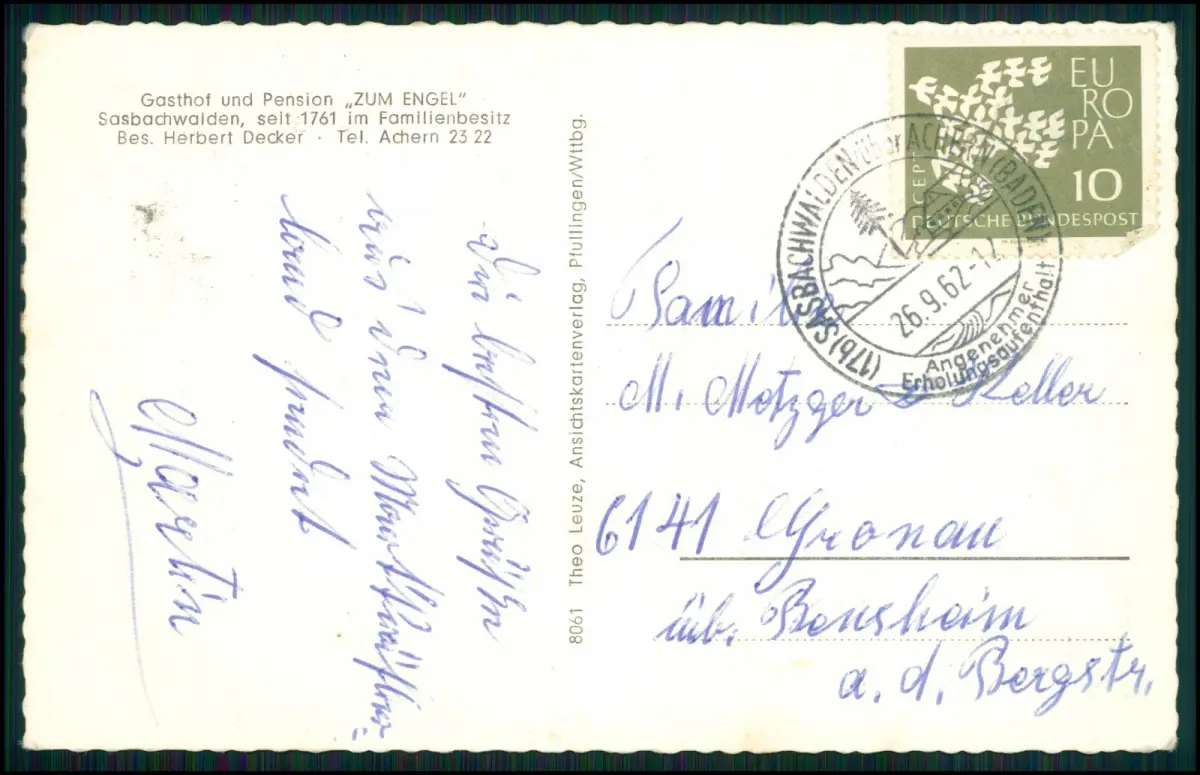 Gasthof und Pension „ZUM ENGEL"
Sasbachwalden, seit 1761 im Familienbesitz
Bes. Herbert Decker · Tel. Achern 23 22
Die besten Grüße
aus dem
land sendet
Martin
8061 Theo Leuze, Ansichtskartenverlag, Pfullingen/Wttbg.
EU
RO
PA
CEPT
10
DEUTSCHE BUNDESPOST
(17b) SASBACHWALDEN über ACHERN (BADEN)
26.9.62-12
Angenehmer
Erholungsaufenthalt
Familie
M. Metzger Keller
6141 Gronau
üb. Bensheim
a. d. Bergstr.